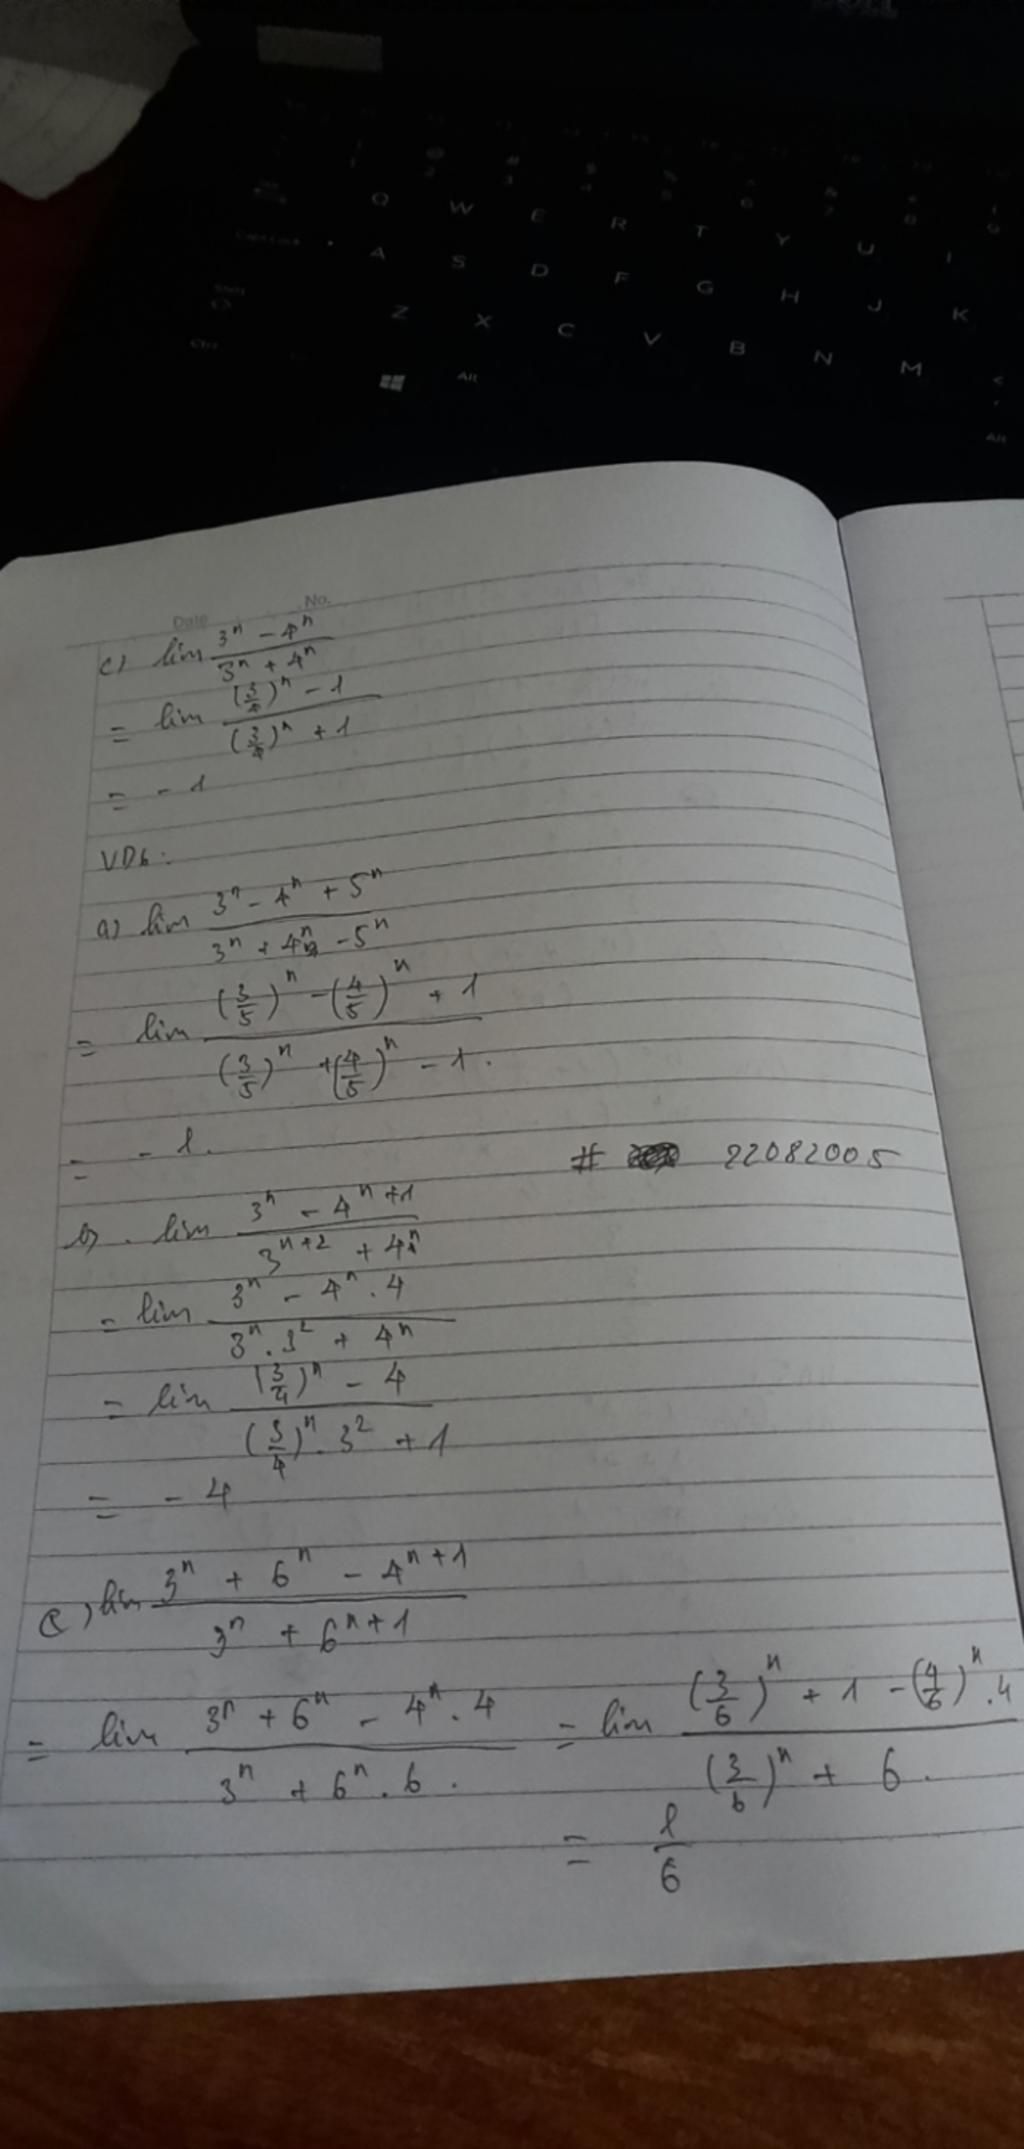 DELL
Q W E R T Y U I
A S D F G H J K
Z X C V B N M
Alt
Date No.
c) lim (3^n - 4^n)/(3^n + 4^n)
= lim ((3/4)^n - 1)/((3/4)^n + 1)
= - 1
VD6:
a) lim (3^n - 4^n + 5^n)/(3^n + 4^n - 5^n)
= lim ((3/5)^n - (4/5)^n + 1)/((3/5)^n + (4/5)^n - 1).
= - 1.
# 22082005
b) . lim (3^n - 4^(n+1))/(3^(n+2) + 4^n)
= lim (3^n - 4^n . 4)/(3^n . 3^2 + 4^n)
= lim ((3/4)^n - 4)/((3/4)^n . 3^2 + 1)
= - 4
c) lim (3^n + 6^n - 4^(n+1))/(3^n + 6^(n+1))
= lim (3^n + 6^n - 4^n . 4)/(3^n + 6^n . 6 .) = lim ((3/6)^n + 1 - (4/6)^n . 4)/((3/6)^n + 6 .)
= 1/6